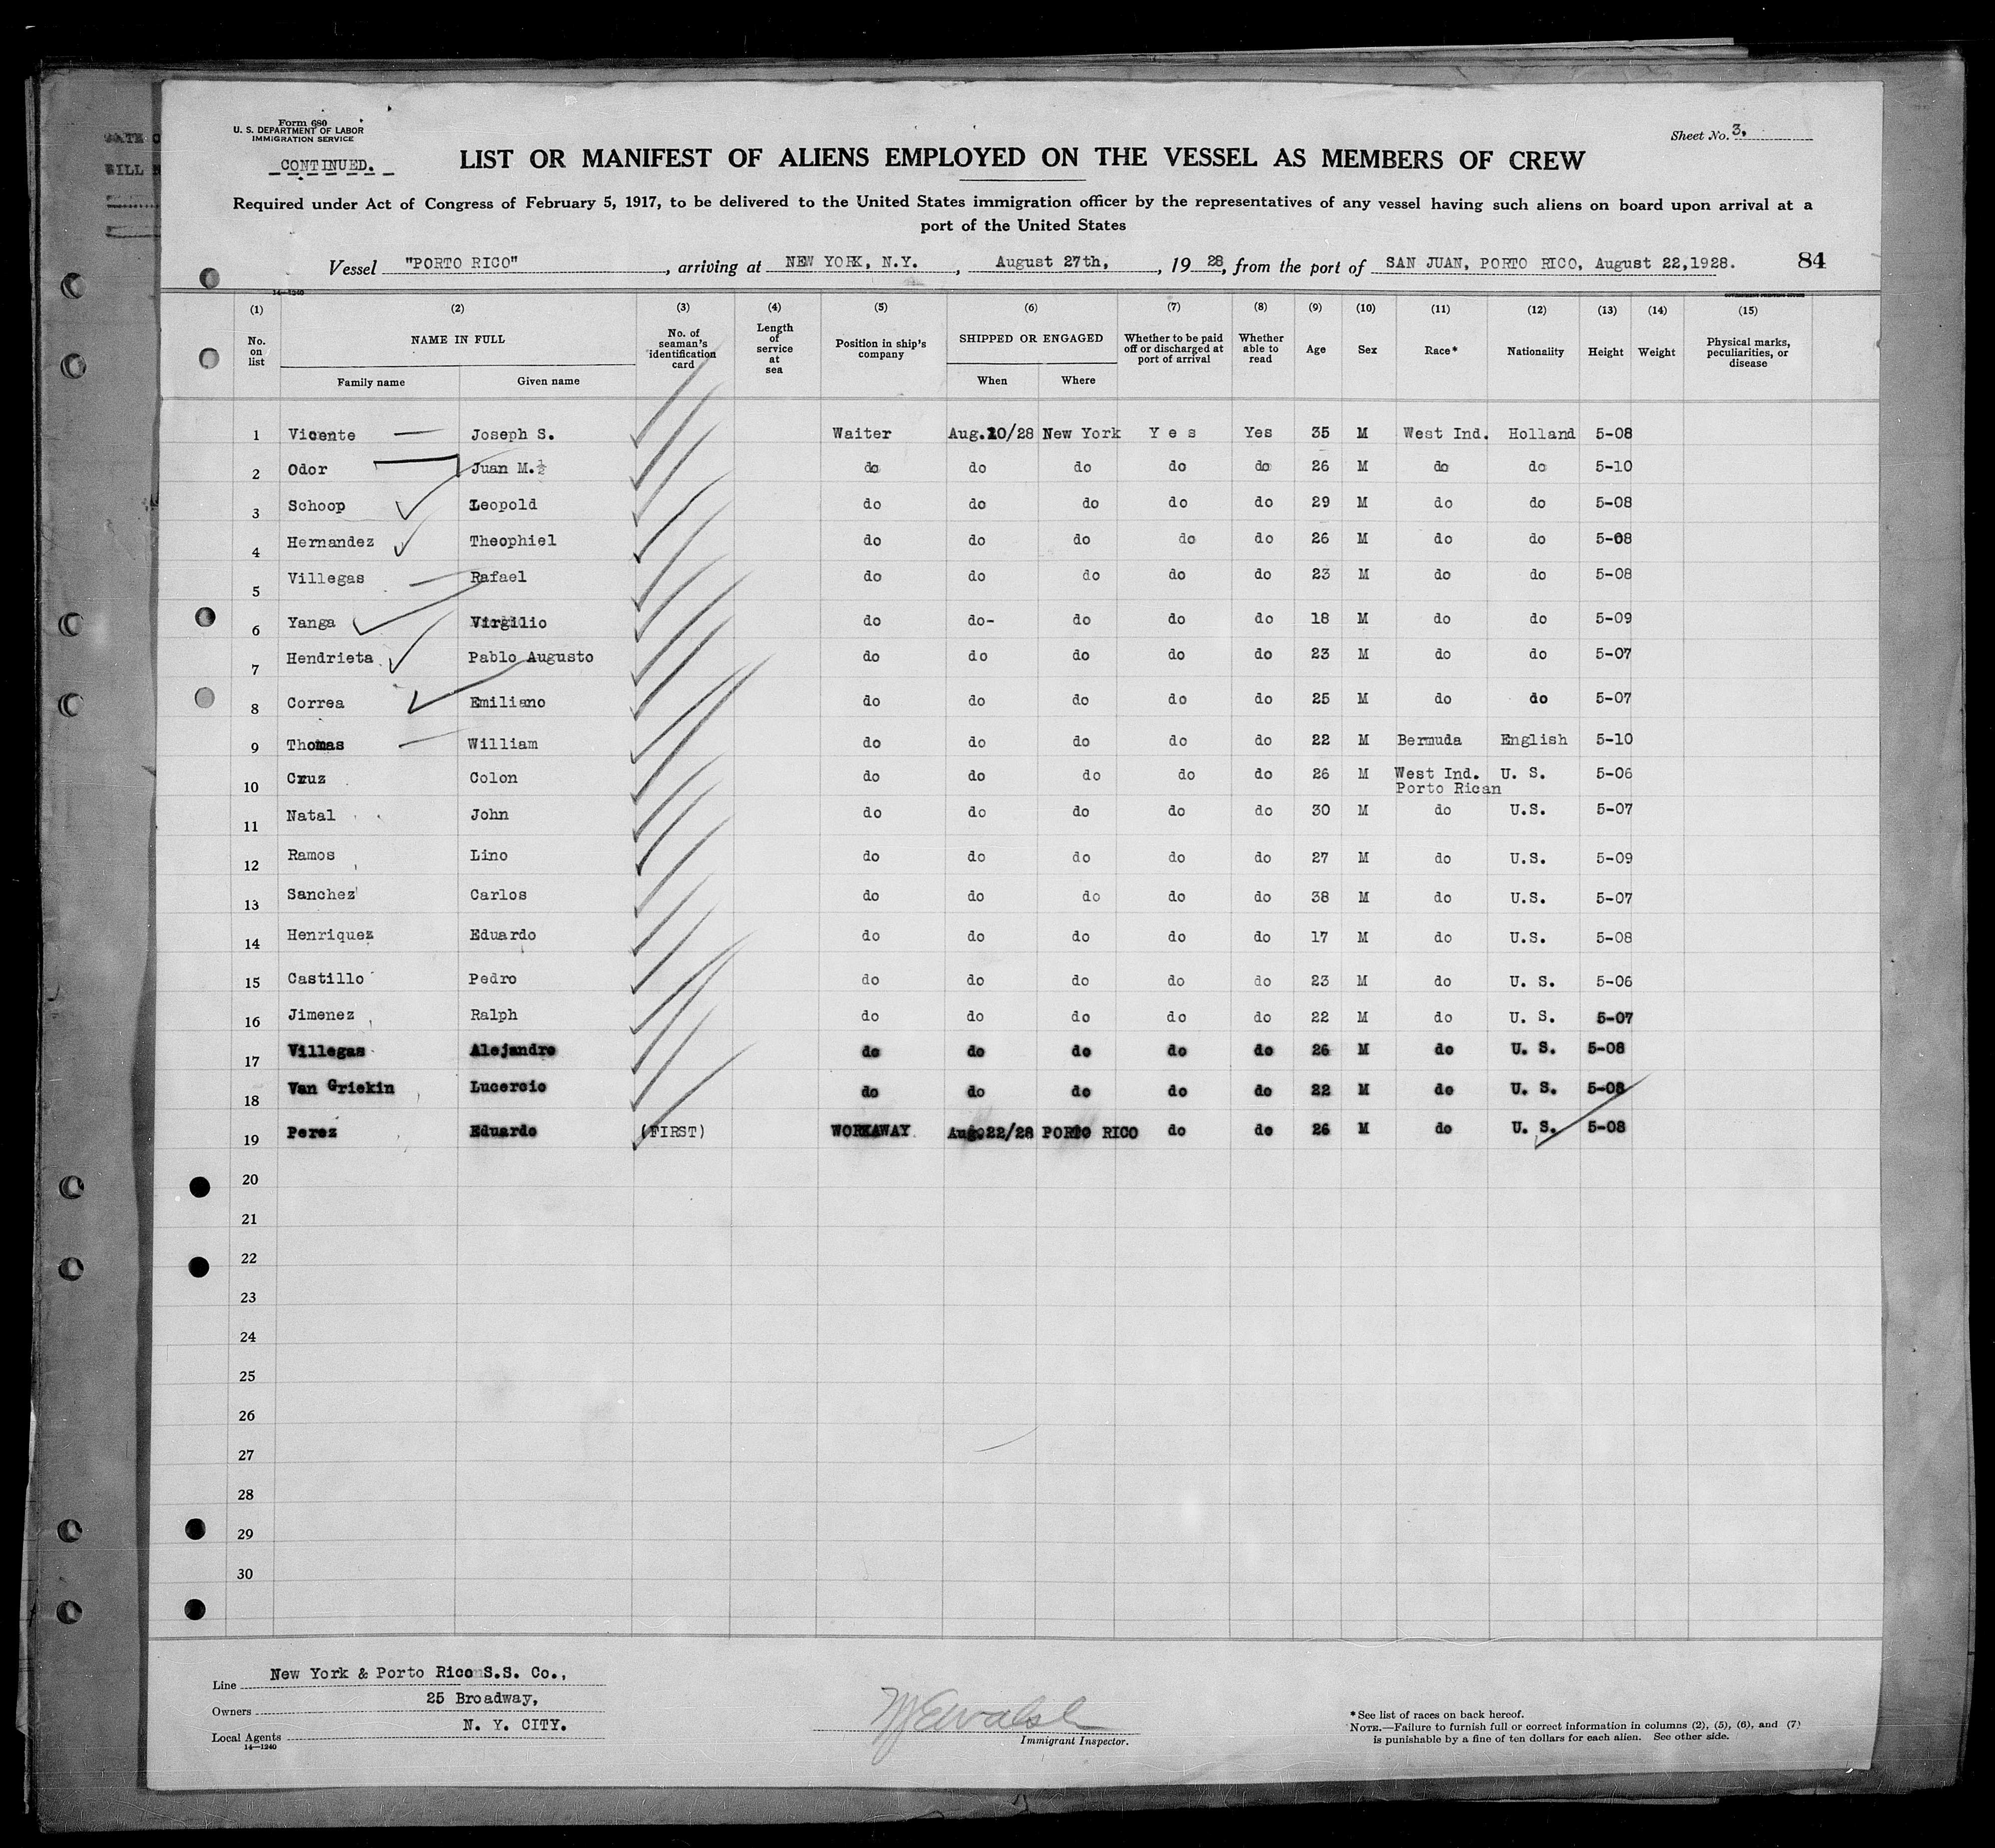 Form 680
U. S. DEPARTMENT OF LABOR
IMMIGRATION SERVICE
CONTINUED.
Sheet No. 3.
LIST OR MANIFEST OF ALIENS EMPLOYED ON THE VESSEL AS MEMBERS OF CREW
Required under Act of Congress of February 5, 1917, to be delivered to the United States immigration officer by the representatives of any vessel having such aliens on board upon arrival at a
port of the United States
Vessel "PORTO RICO", arriving at NEW YORK, N.Y., August 27th, 19 28, from the port of SAN JUAN, PORTO RICO, August 22,1928. 84
14—1240
(1) (2) (3) (4) (5) (6) (7) (8) (9) (10) (11) (12) (13) (14) (15)
No. on list NAME IN FULL Family name Given name No. of seaman's identification card Length of service at sea Position in ship's company SHIPPED OR ENGAGED When Where Whether to be paid off or discharged at port of arrival Whether able to read Age Sex Race* Nationality Height Weight Physical marks, peculiarities, or disease
1 Vicente Joseph S. Waiter Aug.20/28 New York Y e s Yes 35 M West Ind. Holland 5-08
2 Odor Juan M. do do do do do 26 M do do 5-10
3 Schoop Leopold do do do do do 29 M do do 5-08
4 Hernandez Theophiel do do do do do 26 M do do 5-08
5 Villegas Rafael do do do do do 23 M do do 5-08
6 Yanga Virgilio do do- do do do 18 M do do 5-09
7 Hendrieta Pablo Augusto do do do do do 23 M do do 5-07
8 Correa Emiliano do do do do do 25 M do do 5-07
9 Thomas William do do do do do 22 M Bermuda English 5-10
10 Cruz Colon do do do do do 26 M West Ind. U. S. 5-06
Porto Rican
11 Natal John do do do do do 30 M do U.S. 5-07
12 Ramos Lino do do do do do 27 M do U.S. 5-09
13 Sanchez Carlos do do do do do 38 M do U.S. 5-07
14 Henriquez Eduardo do do do do do 17 M do U.S. 5-08
15 Castillo Pedro do do do do do 23 M do U. S. 5-06
16 Jimenez Ralph do do do do do 22 M do U. S. 5-07
17 Villegas Alejandro do do do do do 26 M do U. S. 5-08
18 Van Griekin Lucercio do do do do do 22 M do U. S. 5-08
19 Perez Eduardo (FIRST) WORKAWAY Aug.22/28 PORTO RICO do do 26 M do U. S. 5-08
20
21
22
23
24
25
26
27
28
29
30
Line New York & Porto Rico S.S. Co.,
Owners 25 Broadway,
Local Agents N. Y. CITY.
14—1240
Immigrant Inspector.
* See list of races on back hereof.
NOTE.—Failure to furnish full or correct information in columns (2), (5), (6), and (7)
is punishable by a fine of ten dollars for each alien. See other side.